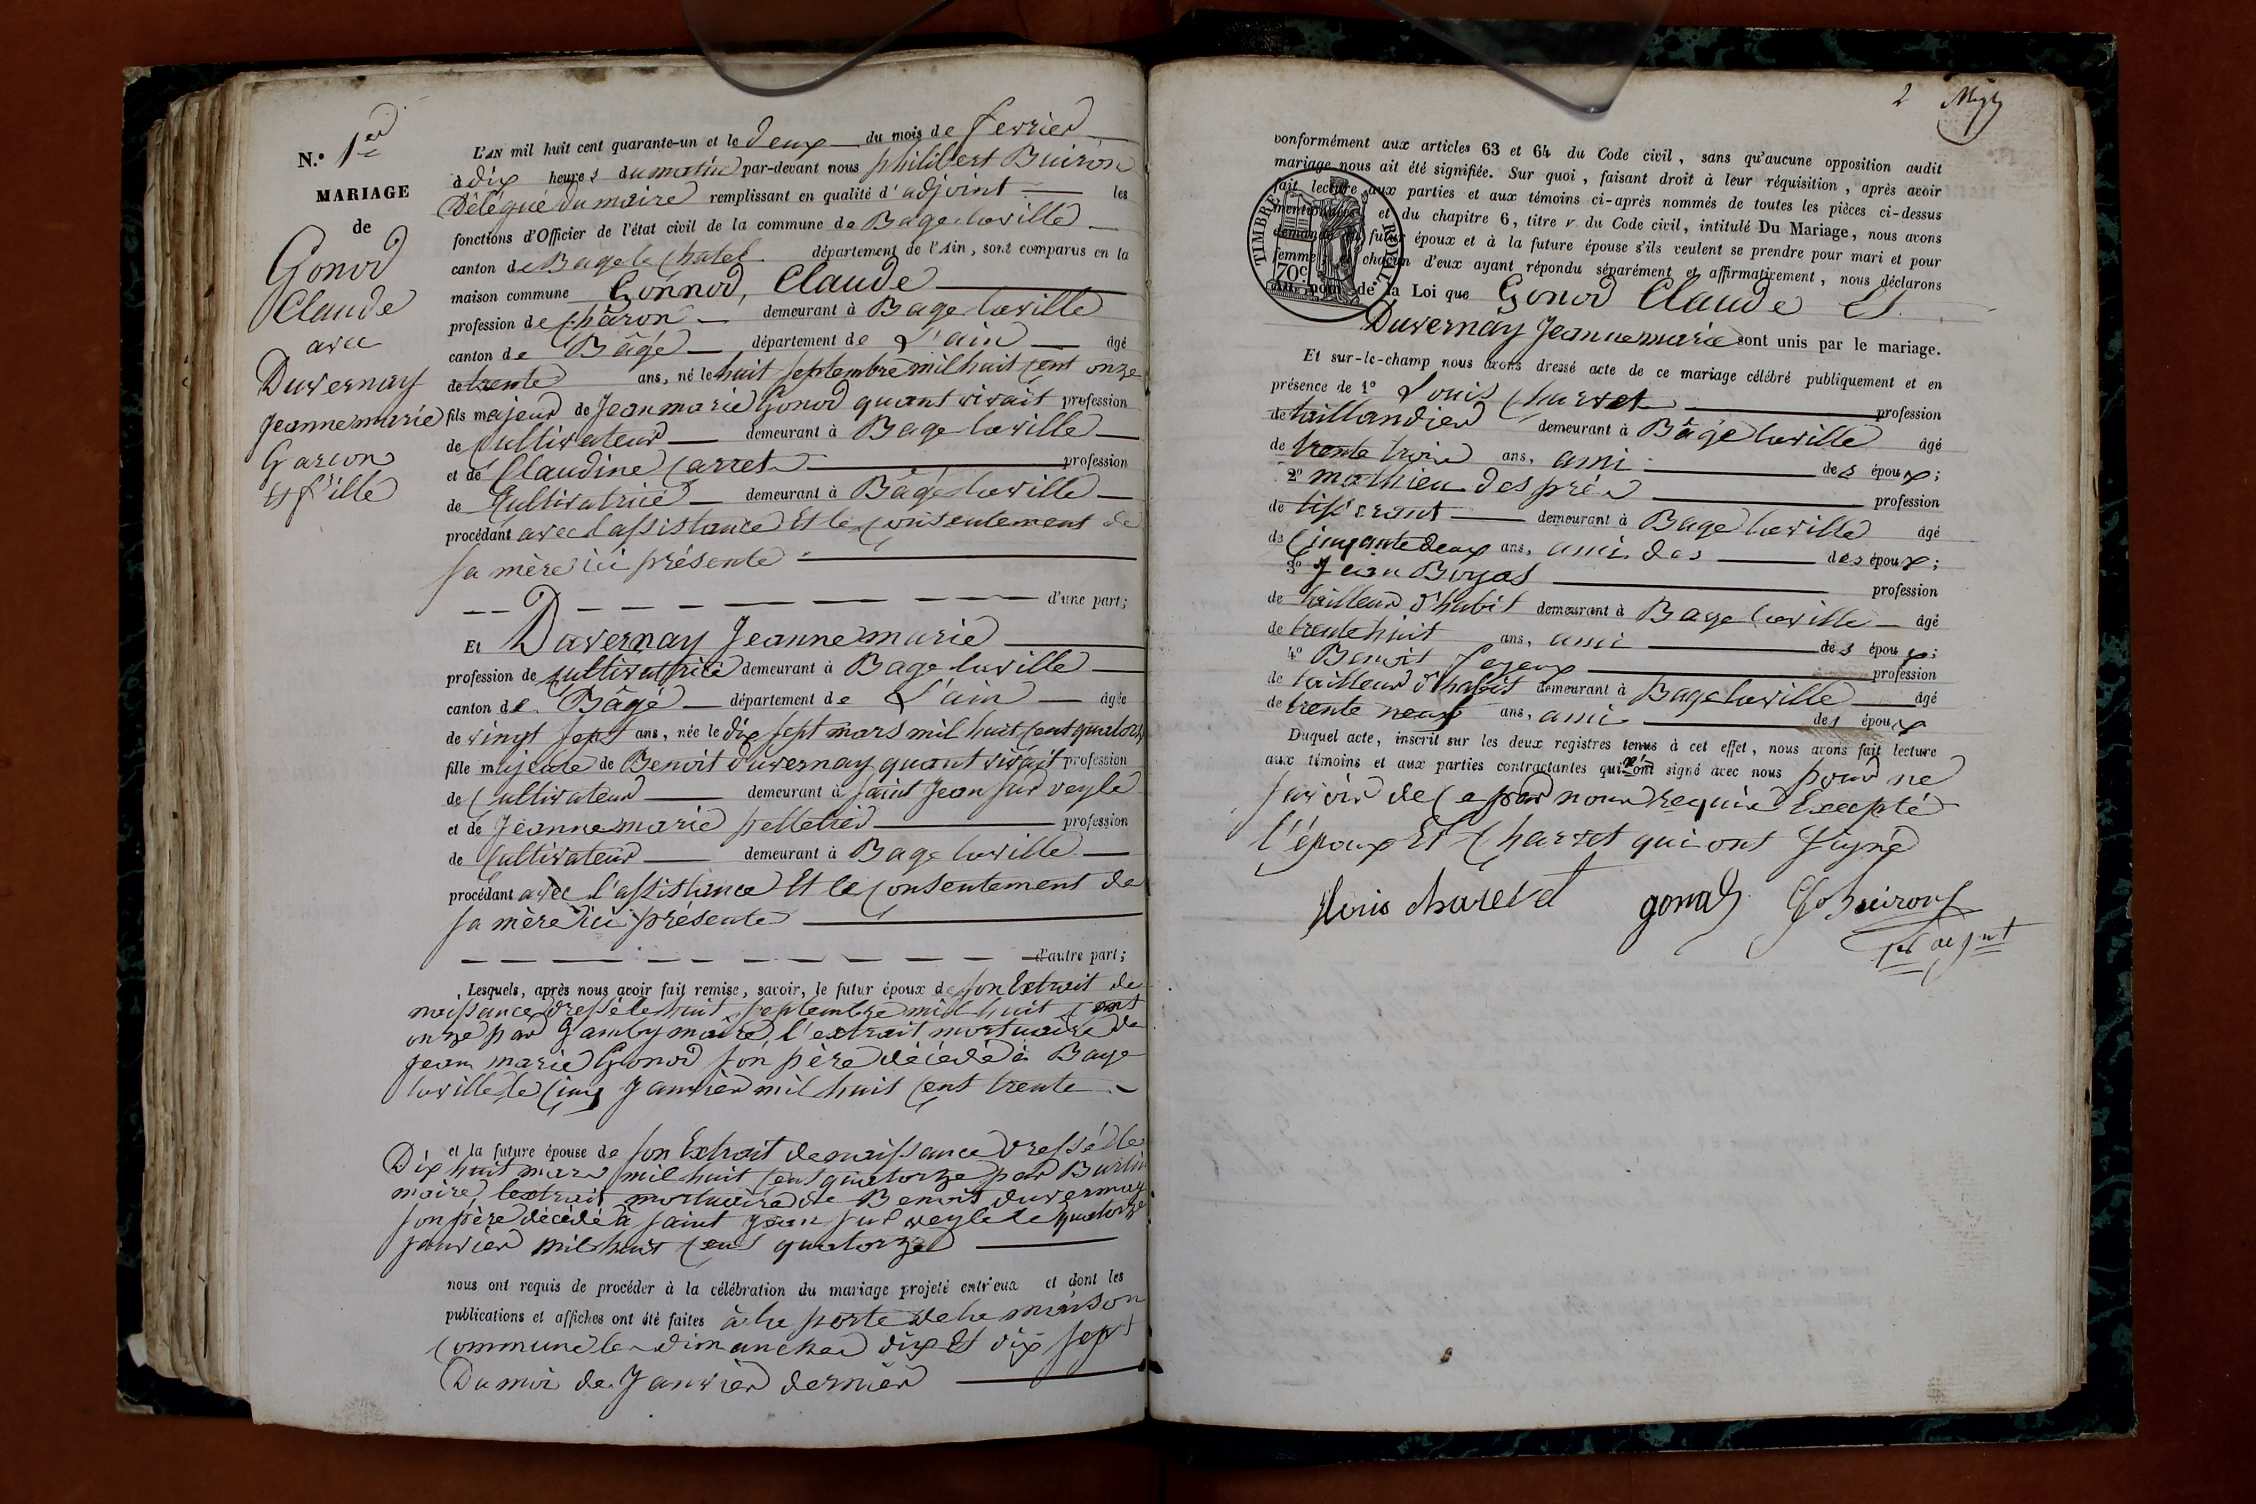 N.° 1er
MARIAGE
de
Gonod
Claude
avec
Duvernay
Jeanne marie
Garcon
et fille
L'AN mil huit cent quarante-un et le deux du mois de fevrier
à dix heures du matin par-devant nous philibert Buiron
Délégué du maire remplissant en qualité d'adjoint les
fonctions d'Officier de l'état civil de la commune de Bage laville
canton de Bage le Chatel département de l'Ain, sont comparus en la
maison commune Gonnod, Claude
profession de charon demeurant à Bage laville
canton de Bâgé département de L'ain âgé
de trente ans, né le huit septembre mil huit cent onze
fils majeur de Jean marie Gonod quant vivait profession
de Cultivateur demeurant à Bage laville
et de Claudine Carret profession
de Cultivatrice demeurant à Bâgé laville
procédant avec l'assistance Et le Consentement de
sa mère ici présente
d'une part;
Et Duvernay Jeanne marie
profession de cultivatrice demeurant à Bage laville
canton de Bâgé département de L'ain âgée
de vingt sept ans, née le dix sept mars mil huit cent quatorze
fille majeure de Benoit duvernay quant vivait profession
de Cultivateur demeurant à saint Jean sur veyle
et de Jeanne marie pelletier profession
de Cultivateur demeurant à Bage laville
procédant avec l'assistance Et le Consentement de
sa mère ici présente
d'autre part;
Lesquels, après nous avoir fait remise, savoir, le futur époux de son Extrait de
naissance dressé le huit septembre mil huit cent
onze par Gamby maire, l'extrait mortuaire de
Jean marie Gonod son père décédé à Bage
laville le cinq Janvier mil huit cent trente
et la future épouse de son Extrait de naissance dressé le
Dix huit mars mil huit cent quatorze par Burtin
maire, l'extrait mortuaire de Benoit duvernay
son père décédé à saint Jean sur veyle le quatorze
Janvier mil huit cent quatorze
nous ont requis de procéder à la célébration du mariage projeté entr'eux et dont les
publications et affiches ont été faites à la porte de la maison
Commune les dimanches dix Et dix sept
Du moi de Janvier dernier
2
conformément aux articles 63 et 64 du Code civil, sans qu'aucune opposition audit
mariage nous ait été signifiée. Sur quoi, faisant droit à leur réquisition, après avoir
fait lecture aux parties et aux témoins ci-après nommés de toutes les pièces ci-dessus
mentionnées et du chapitre 6, titre v du Code civil, intitulé Du Mariage, nous avons
demandé au futur époux et à la future épouse s'ils veulent se prendre pour mari et pour
femme chacun d'eux ayant répondu séparément et affirmativement, nous déclarons
au nom de la Loi que Gonod Claude Et
TIMBRE ROYAL
70c
Duvernay Jeanne marie sont unis par le mariage.
Et sur-le-champ nous avons dressé acte de ce mariage célébré publiquement et en
présence de 1° Louis Charvet profession
de taillandier demeurant à Bâgé laville âgé
de trente trois ans, ami des époux;
2° mathieu despré profession
de tisserant demeurant à Bage laville âgé
de Cinquante deux ans, ami des des époux;
3° Jean Boyas profession
de tailleur d'habit demeurant à Bage laville âgé
de trente huit ans, ami des époux;
4° Benoit Joyeux profession
de tailleur d'habit demeurant à Bage laville âgé
de trente neuf ans, ami des époux
Duquel acte, inscrit sur les deux registres tenus à cet effet, nous avons fait lecture
aux témoins et aux parties contractantes qui n'ont signé avec nous pour ne
savoir de ce par nous requis Excepté
l'époux Et Charvet qui ont signé
louis charvet gonod Ph Buiron